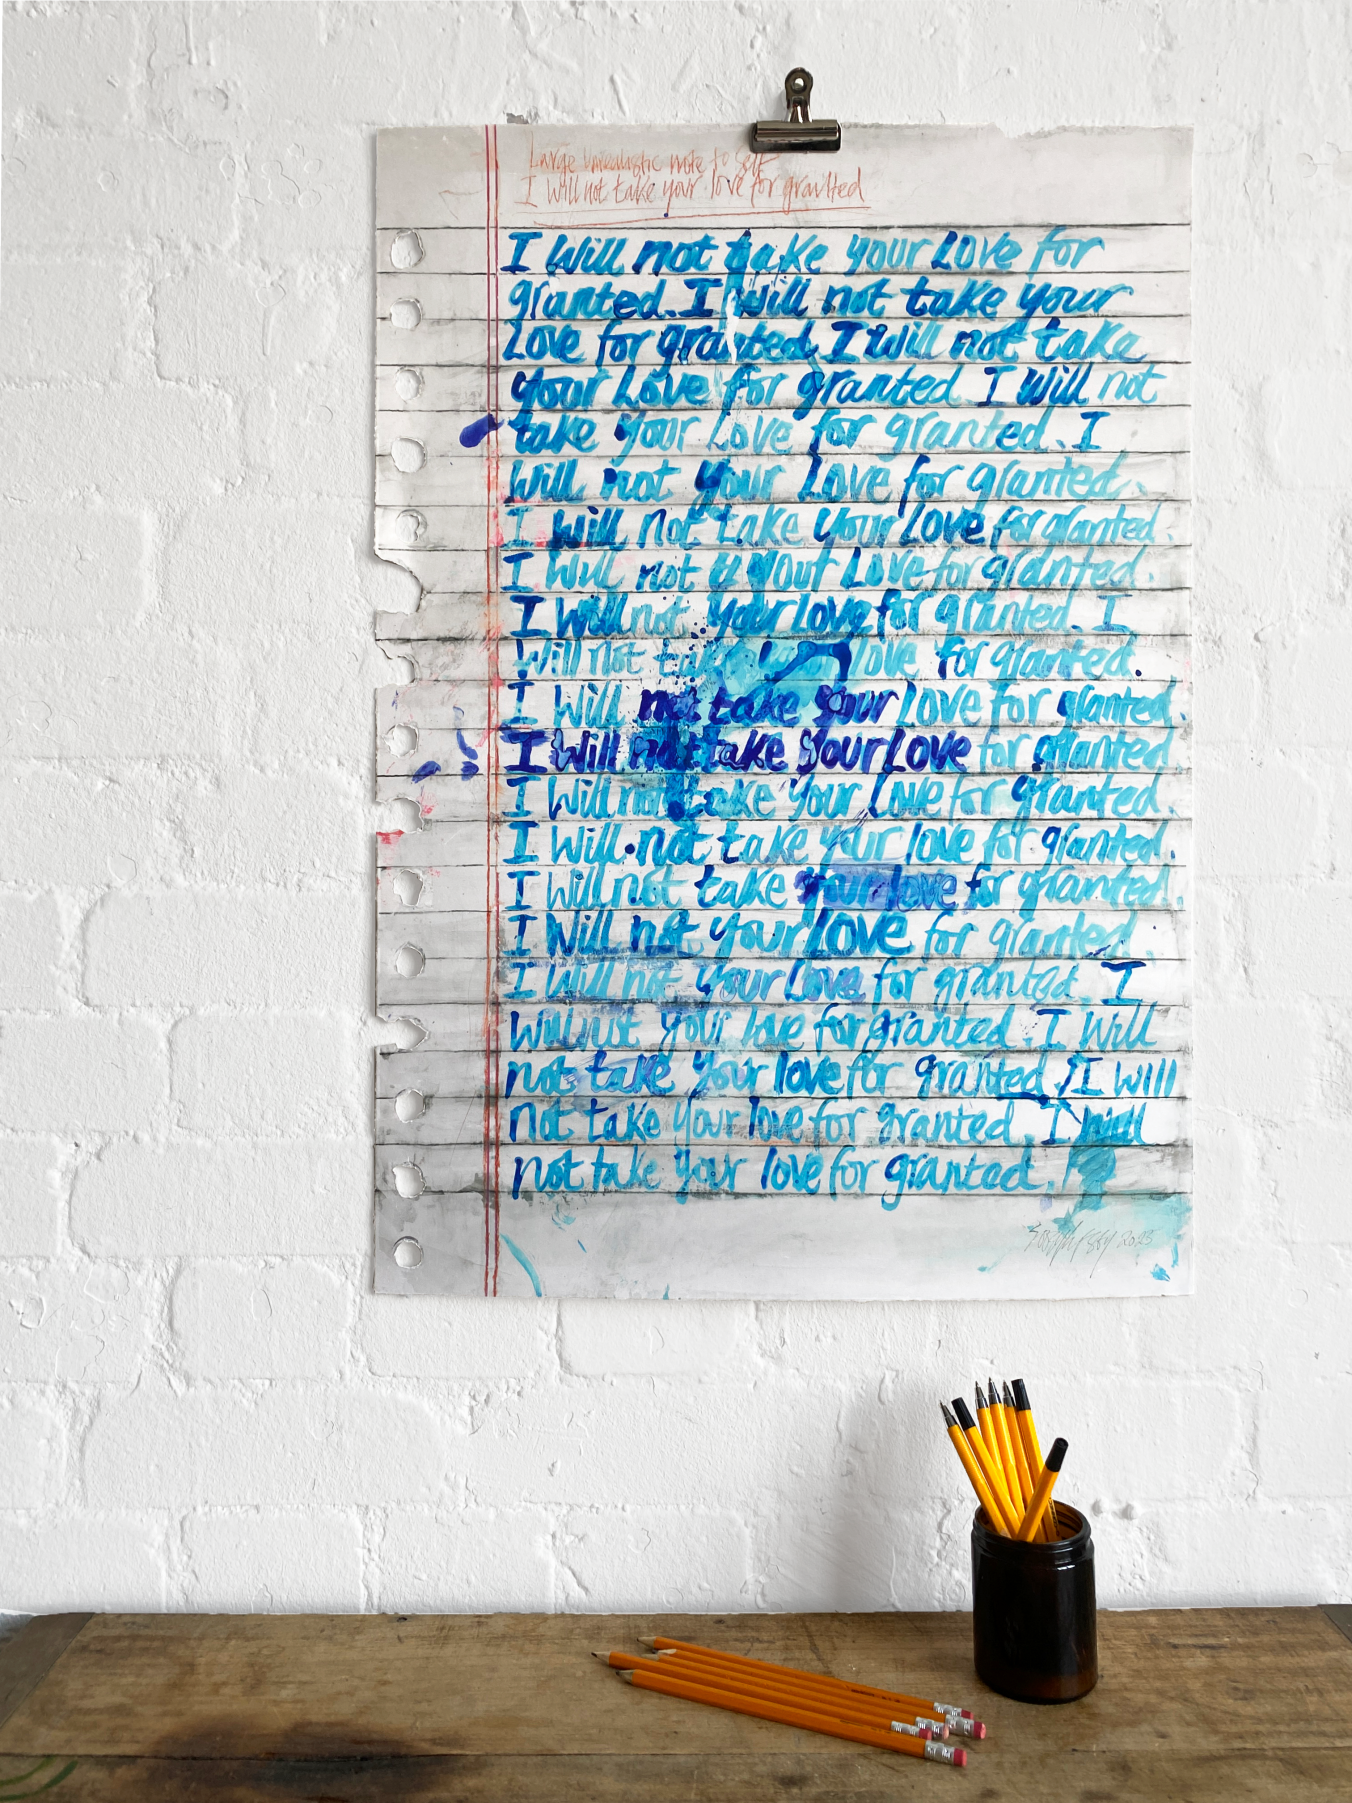 Large Unrealistic note to self
I Will not take your love for granted
I Will not take your Love for
granted. I will not take your
Love for granted I Will not take
your Love for granted I Will not
take your Love for granted. I
Will not your Love for granted.
I Will not take your Love for granted.
I Will not your Love for granted.
I Will not your Love for granted. I
Will not take love for granted.
I Will not take your Love for granted.
I Will not take your Love for granted
I Will not take your Love for granted.
I Will not take your love for granted.
I Will not take your love for granted.
I Will not your love for granted.
I Will not your Love for granted. I
Will not your love for granted. I Will
not take your love for granted. I will
not take your love for granted. I will
not take your love for granted.
2023